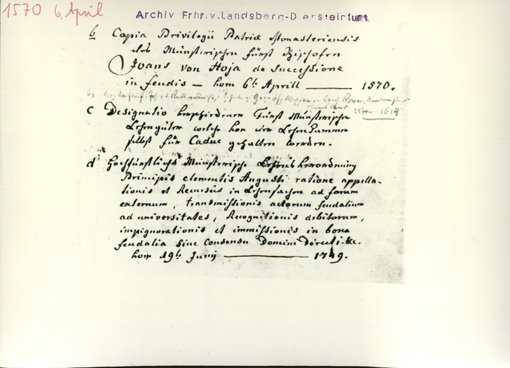 1570 6 April
Archiv Frhr.v.Landsberg-D ensteinfurt
b Copia Privilegii Patriæ Monasteriensis
des Münsterischen Fürst Bischofen
Joans von Hoja de Successione
in feudis — vom 6t Aprill — 1570.
1614
c Designatio verschiedener Fürst Münsterischen
Lehngüter welche von der Lehn Cammer
selbst für Caduc gehalten worden.
d Hochfürstliche Münsterische Lehns Verordnung
Principis clementis Augusti ratione appella-
tionis et Recursus in Lehnsachen ad forum
externum, transmissionis actorum feudalium
ad universitates, Recognitionis debitorum,
impignorationis et immissionis in bona
feudalia sine Consensu Domini Directi &c.
vom 19t Junij — 1749.